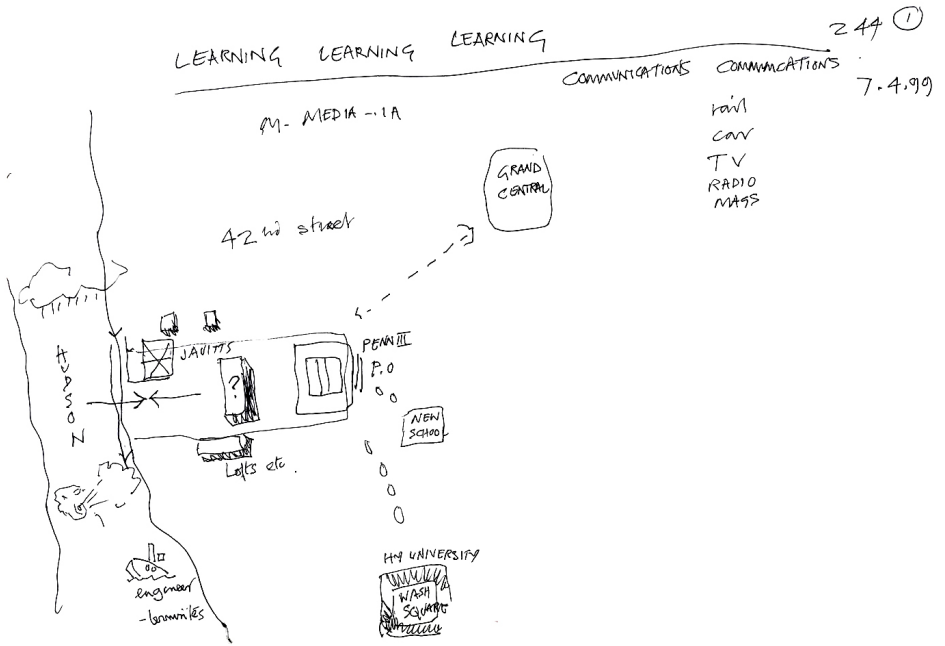 244 1
LEARNING LEARNING LEARNING
COMMUNICATIONS COMMNCATIONS
7.4.99
MEDIA
rail
car
TV
RADIO
MASS
GRAND
CENTRAL
42nd street
HUDSON
JAVITTS
PENN III
P.O
?
NEW
SCHOOL
Lofts etc.
NY UNIVERSITY
WASH
SQUARE
engineer